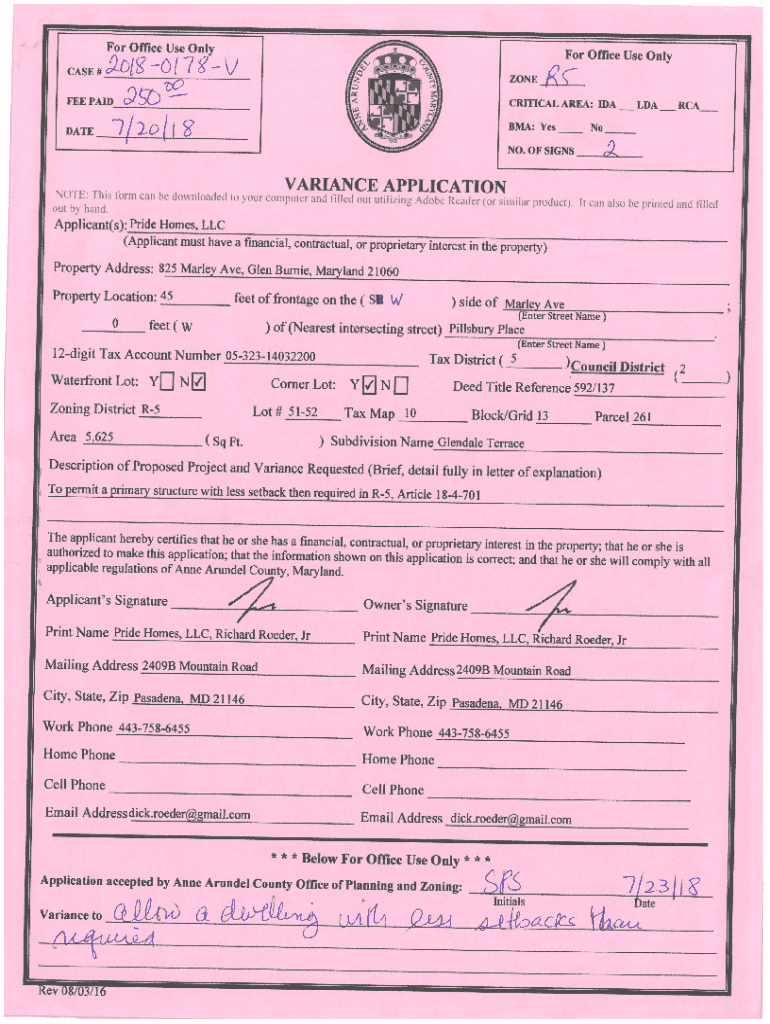 For Office Use Only
CASE # 2018-0178-V
FEE PAID 250 00
DATE 7/20/18
ANNE ARUNDEL COUNTY MARYLAND
For Office Use Only
ZONE R5
CRITICAL AREA: IDA ___ LDA ___ RCA ___
BMA: Yes ____ No ____
NO. OF SIGNS 2
VARIANCE APPLICATION
NOTE: This form can be downloaded to your computer and filled out utilizing Adobe Reader (or similar product). It can also be printed and filled
out by hand.
Applicant(s): Pride Homes, LLC
(Applicant must have a financial, contractual, or proprietary interest in the property)
Property Address: 825 Marley Ave, Glen Burnie, Maryland 21060
Property Location: 45 feet of frontage on the ( S W ) side of Marley Ave ;
(Enter Street Name )
0 feet ( W ) of (Nearest intersecting street) Pillsbury Place .
(Enter Street Name )
12-digit Tax Account Number 05-323-14032200 Tax District ( 5 ) Council District ( 2 )
Waterfront Lot: Y☐ N☑ Corner Lot: Y☑ N☐ Deed Title Reference 592/137
Zoning District R-5 Lot # 51-52 Tax Map 10 Block/Grid 13 Parcel 261
Area 5,625 ( Sq Ft. ) Subdivision Name Glendale Terrace
Description of Proposed Project and Variance Requested (Brief, detail fully in letter of explanation)
To permit a primary structure with less setback then required in R-5, Article 18-4-701
The applicant hereby certifies that he or she has a financial, contractual, or proprietary interest in the property; that he or she is
authorized to make this application; that the information shown on this application is correct; and that he or she will comply with all
applicable regulations of Anne Arundel County, Maryland.
Applicant's Signature Owner's Signature
Print Name Pride Homes, LLC, Richard Roeder, Jr Print Name Pride Homes, LLC, Richard Roeder, Jr
Mailing Address 2409B Mountain Road Mailing Address 2409B Mountain Road
City, State, Zip Pasadena, MD 21146 City, State, Zip Pasadena, MD 21146
Work Phone 443-758-6455 Work Phone 443-758-6455
Home Phone Home Phone
Cell Phone Cell Phone
Email Address dick.roeder@gmail.com Email Address dick.roeder@gmail.com
* * * Below For Office Use Only * * *
Application accepted by Anne Arundel County Office of Planning and Zoning: SPS 7/23/18
Initials Date
Variance to allow a dwelling with less setbacks than
required
Rev 08/03/16